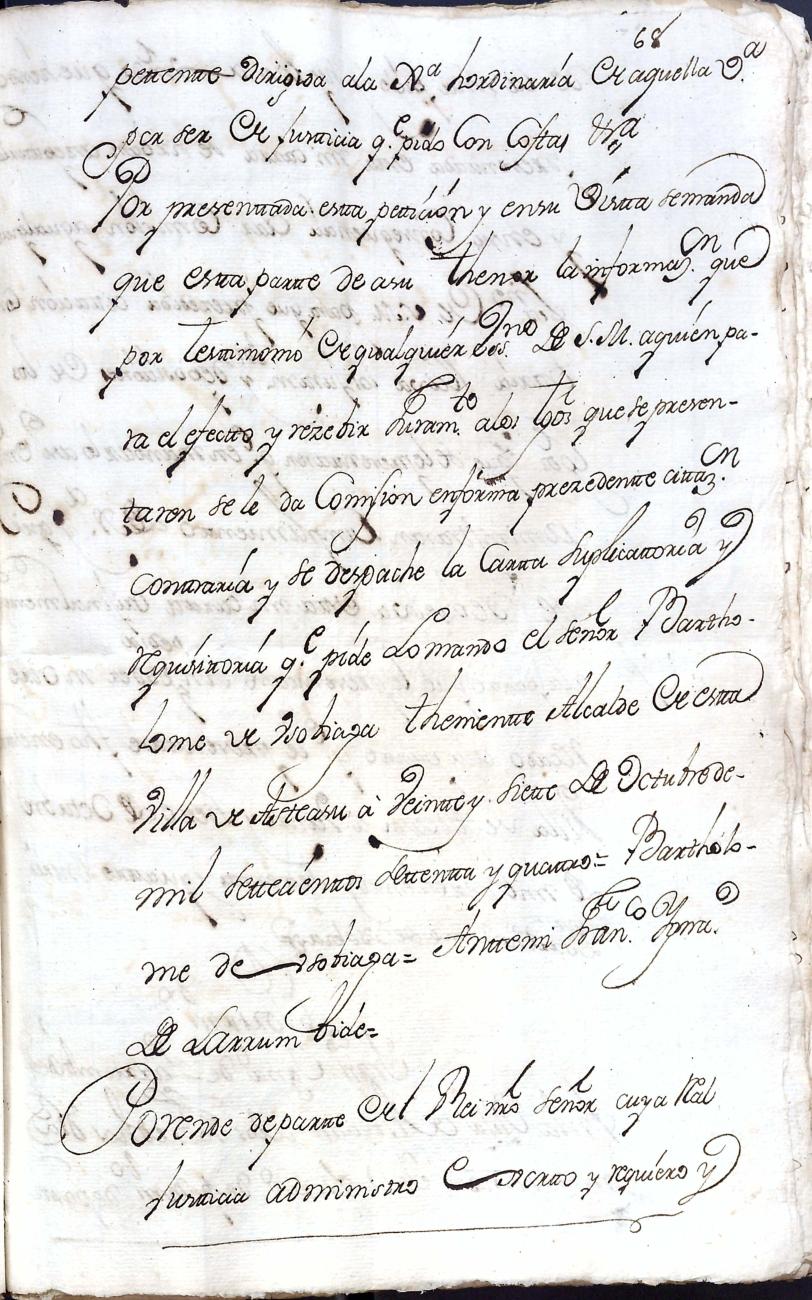 68
pettente Dirigida ala N.ª hordinaria de aquella V.ª
por ser de Justicia q.e pido Con Costas &ra
Por presenttada estta petición y en su Vistta se manda
que estta partte de a su thenor la informaz.on que
por testimonio de qualquier es.no de S. M. aquién pa-
ra el efectto y rezebir Juram.to alos tgos que se presen-
taren se le da Comision en forma prezedentte cittaz.on
conttraría y se despache la Cartta Suplicattoria y
requisittoria q.e pide Lo mando el señor Bartho-
lome de Ysobiaga theniente Alcalde de estta
Villa de Asteasu à Veintte y siette de Octubre de-
mil settecienttos settentta y quattro= Barthólo-
me de Ysobiaga= Anttemi Fran.co Ygna.º
de Larrumbide=
Porende departte del Rei nro señor cuya Real
Justticia administro Exorto y requiero y